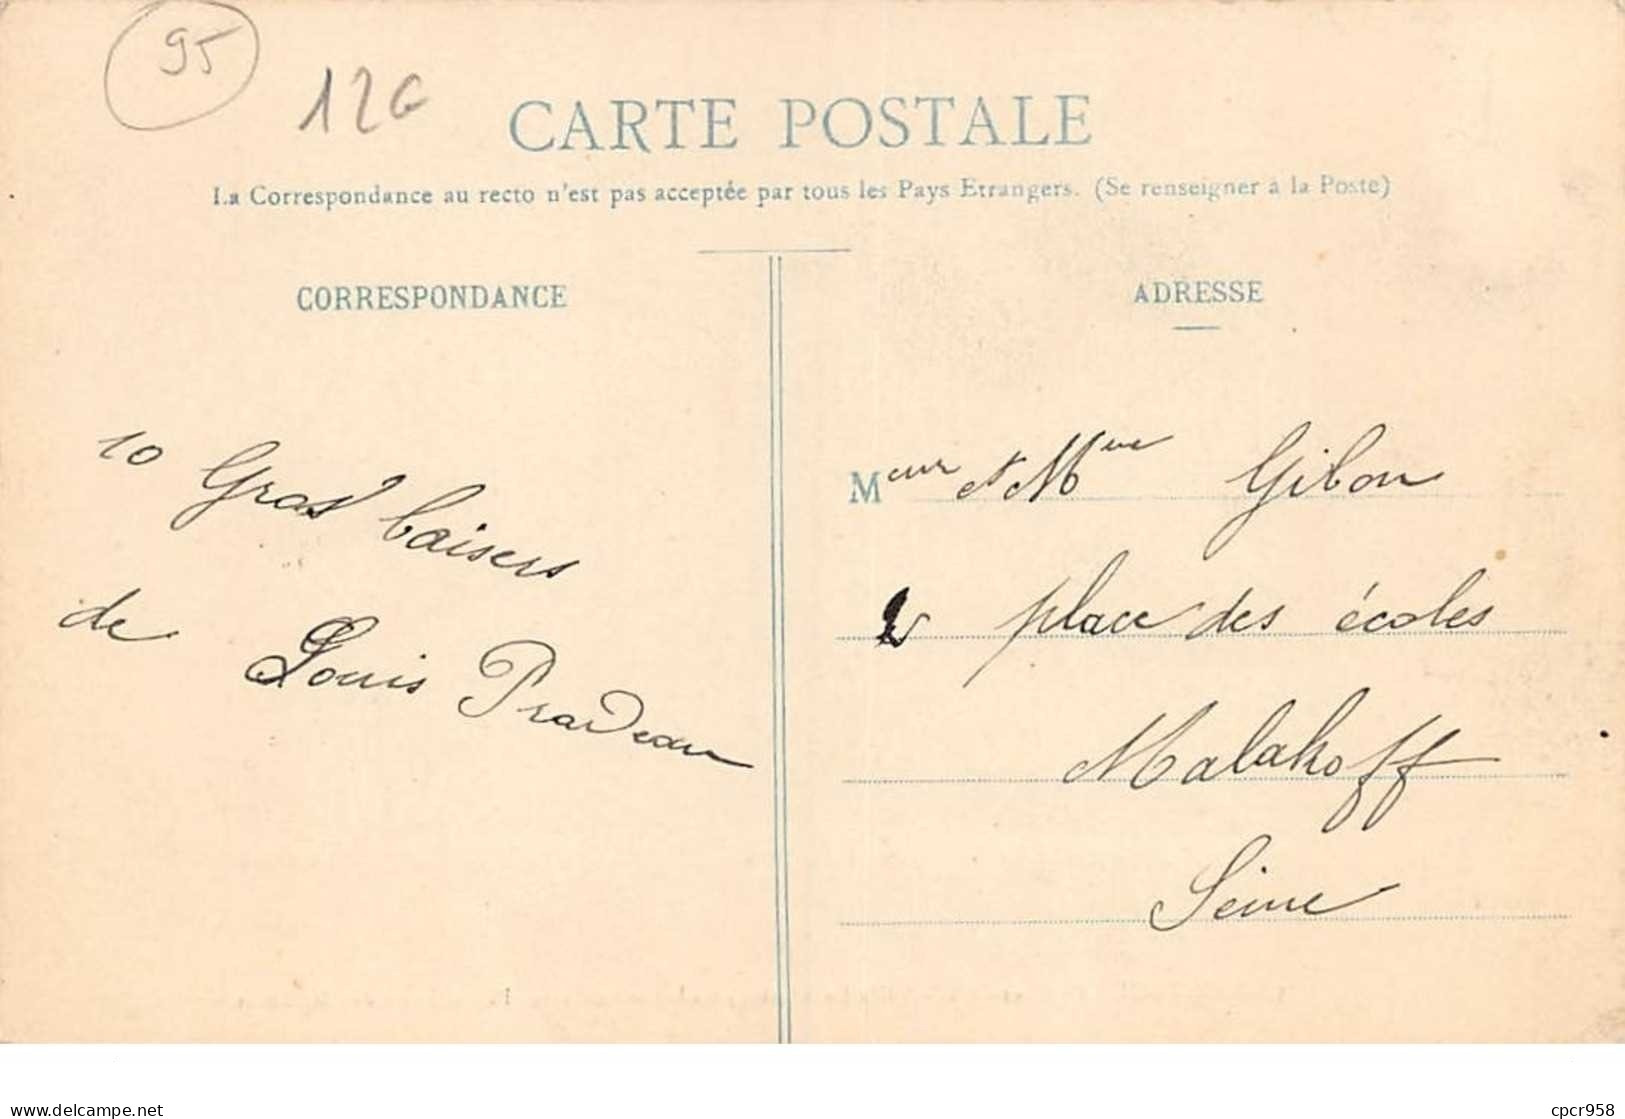 95
12G
CARTE POSTALE
La Correspondance au recto n'est pas acceptée par tous les Pays Etrangers. (Se renseigner à la Poste)
CORRESPONDANCE
10 Gros baisers
de Louis Pradeau
ADRESSE
Meur et Mme Gibon
place des écoles
Malakoff
Seine
delcampe.net
cpcr958